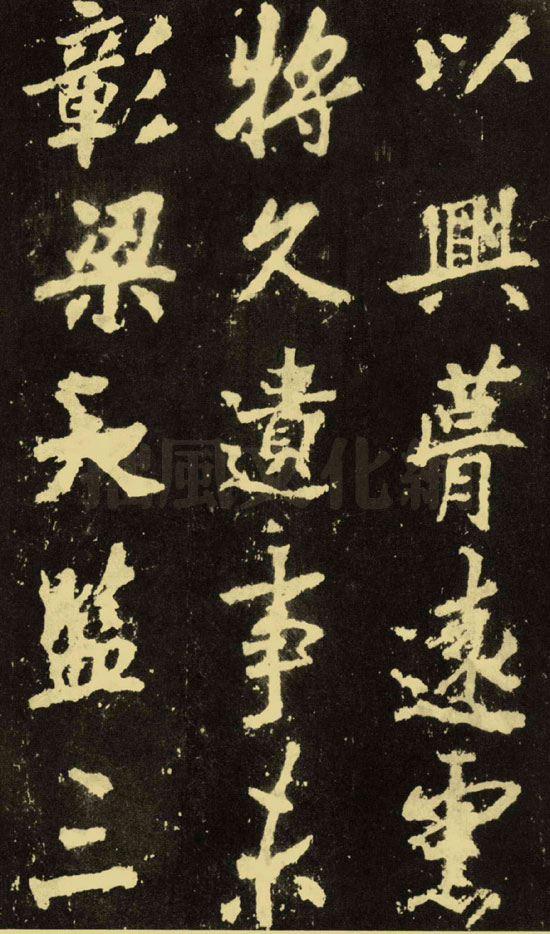 以興遠
將久遺事未
彰梁天監三
拙風文化網